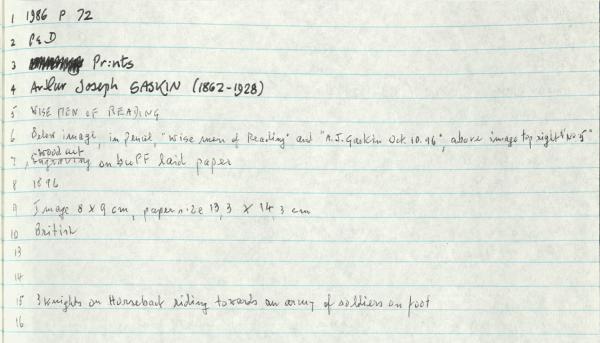 1 1986 P 72
2 P&D
3 Prints
4 Arthur Joseph GASKIN (1862-1928)
5 WISE MEN OF READING
6 Below image, in Pencil, "Wise men of Reading" and "A.J. Gaskin Oct. 10. 96", above image top right "No 5"
woodcut
7 , Engraving on buff laid paper
8 1896
9 Image 8 x 9 cm, paper size 13,3 x 14,3 cm
10 British
13
14
15 3 Knights on Horseback riding towards an army of soldiers on foot
16